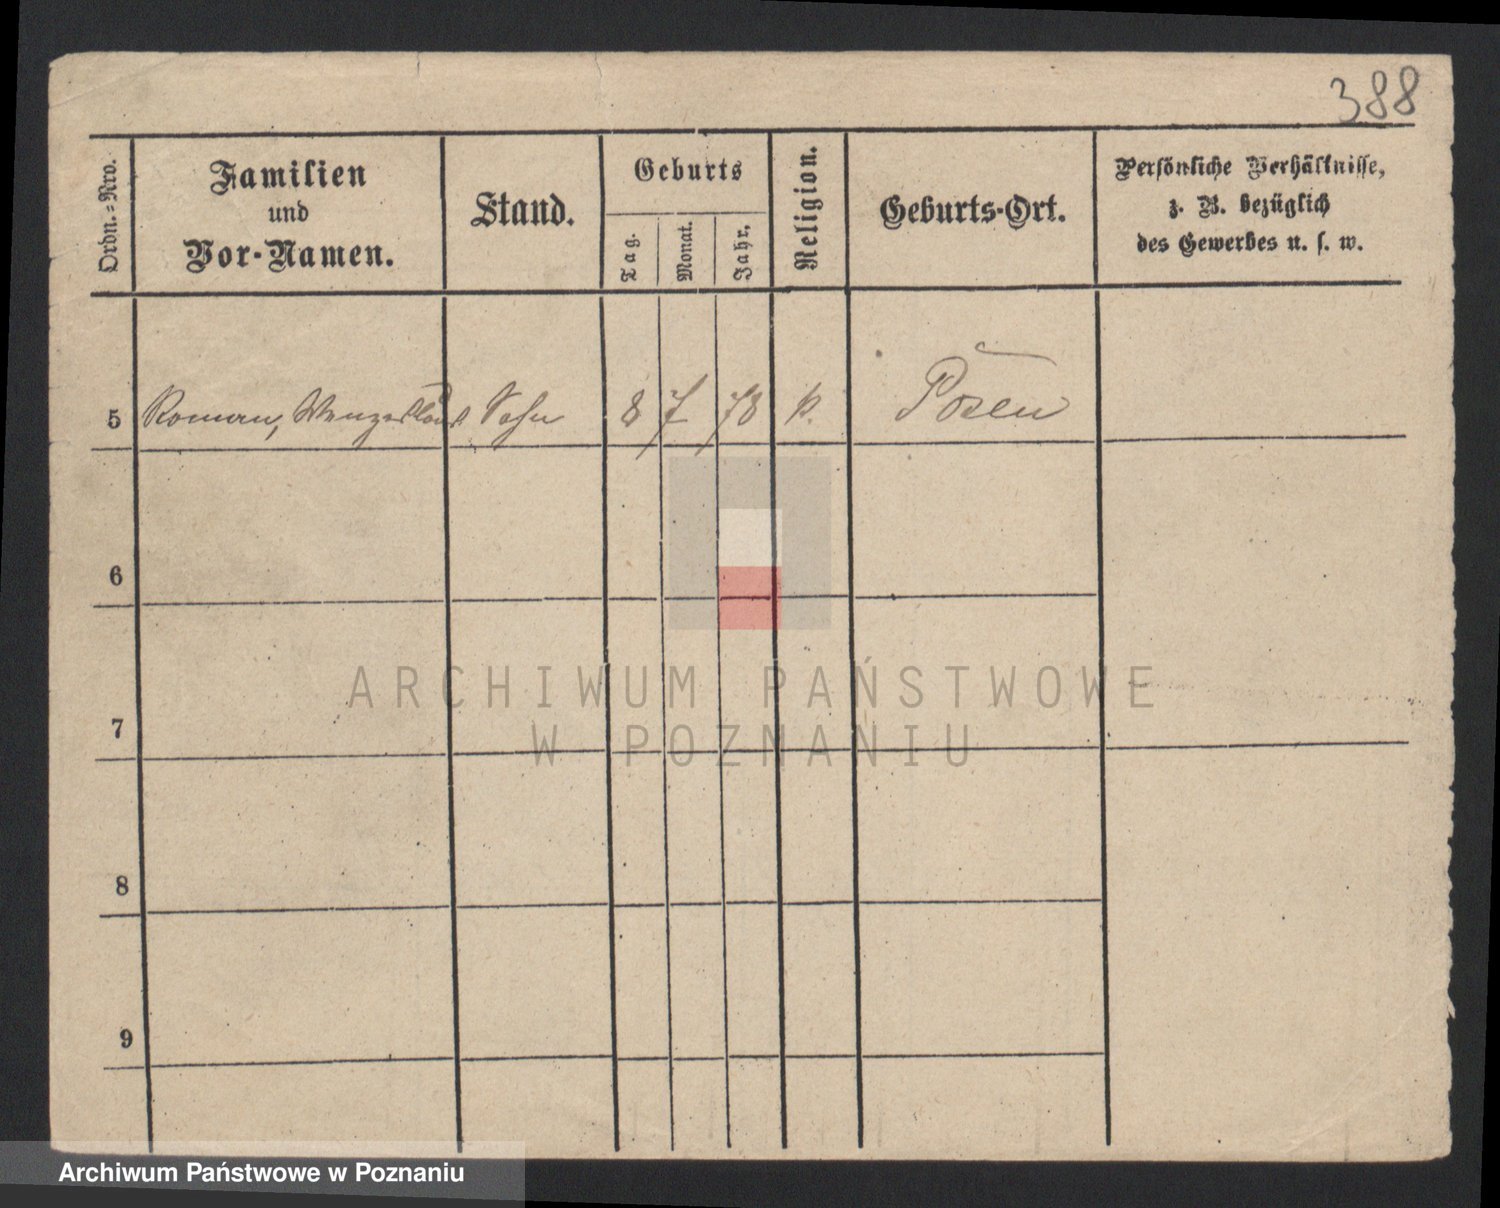 388
Ordn.-Nro.
Familien
und
Vor-Namen.
Stand.
Geburts
Tag.
Monat.
Jahr.
Religion.
Geburts-Ort.
Persönliche Verhältnisse,
z. B. bezüglich
des Gewerbes u. s. w.
5 Roman, Wenzeslaus Sohn 8 7 78 k. Posen
6
7
8
9
ARCHIWUM PAŃSTWOWE
W POZNANIU
Archiwum Państwowe w Poznaniu